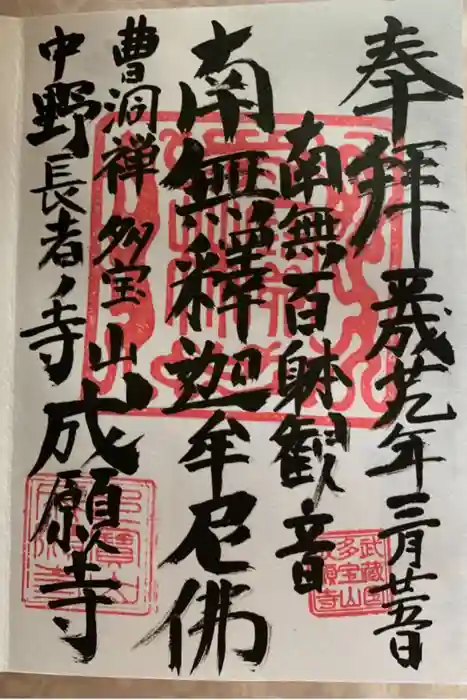 奉拝 平成廿九年三月廿五日
南無百躰観音
南無釋迦牟尼佛
曹洞禅 多宝山 成願寺
中野長者ノ寺
武蔵国
多宝山
成願寺